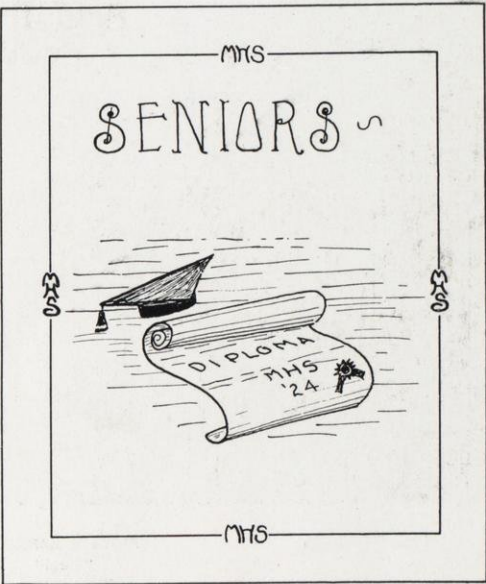 MHS
SENIORS ~
MHS
MHS
DIPLOMA
MHS
'24
MHS